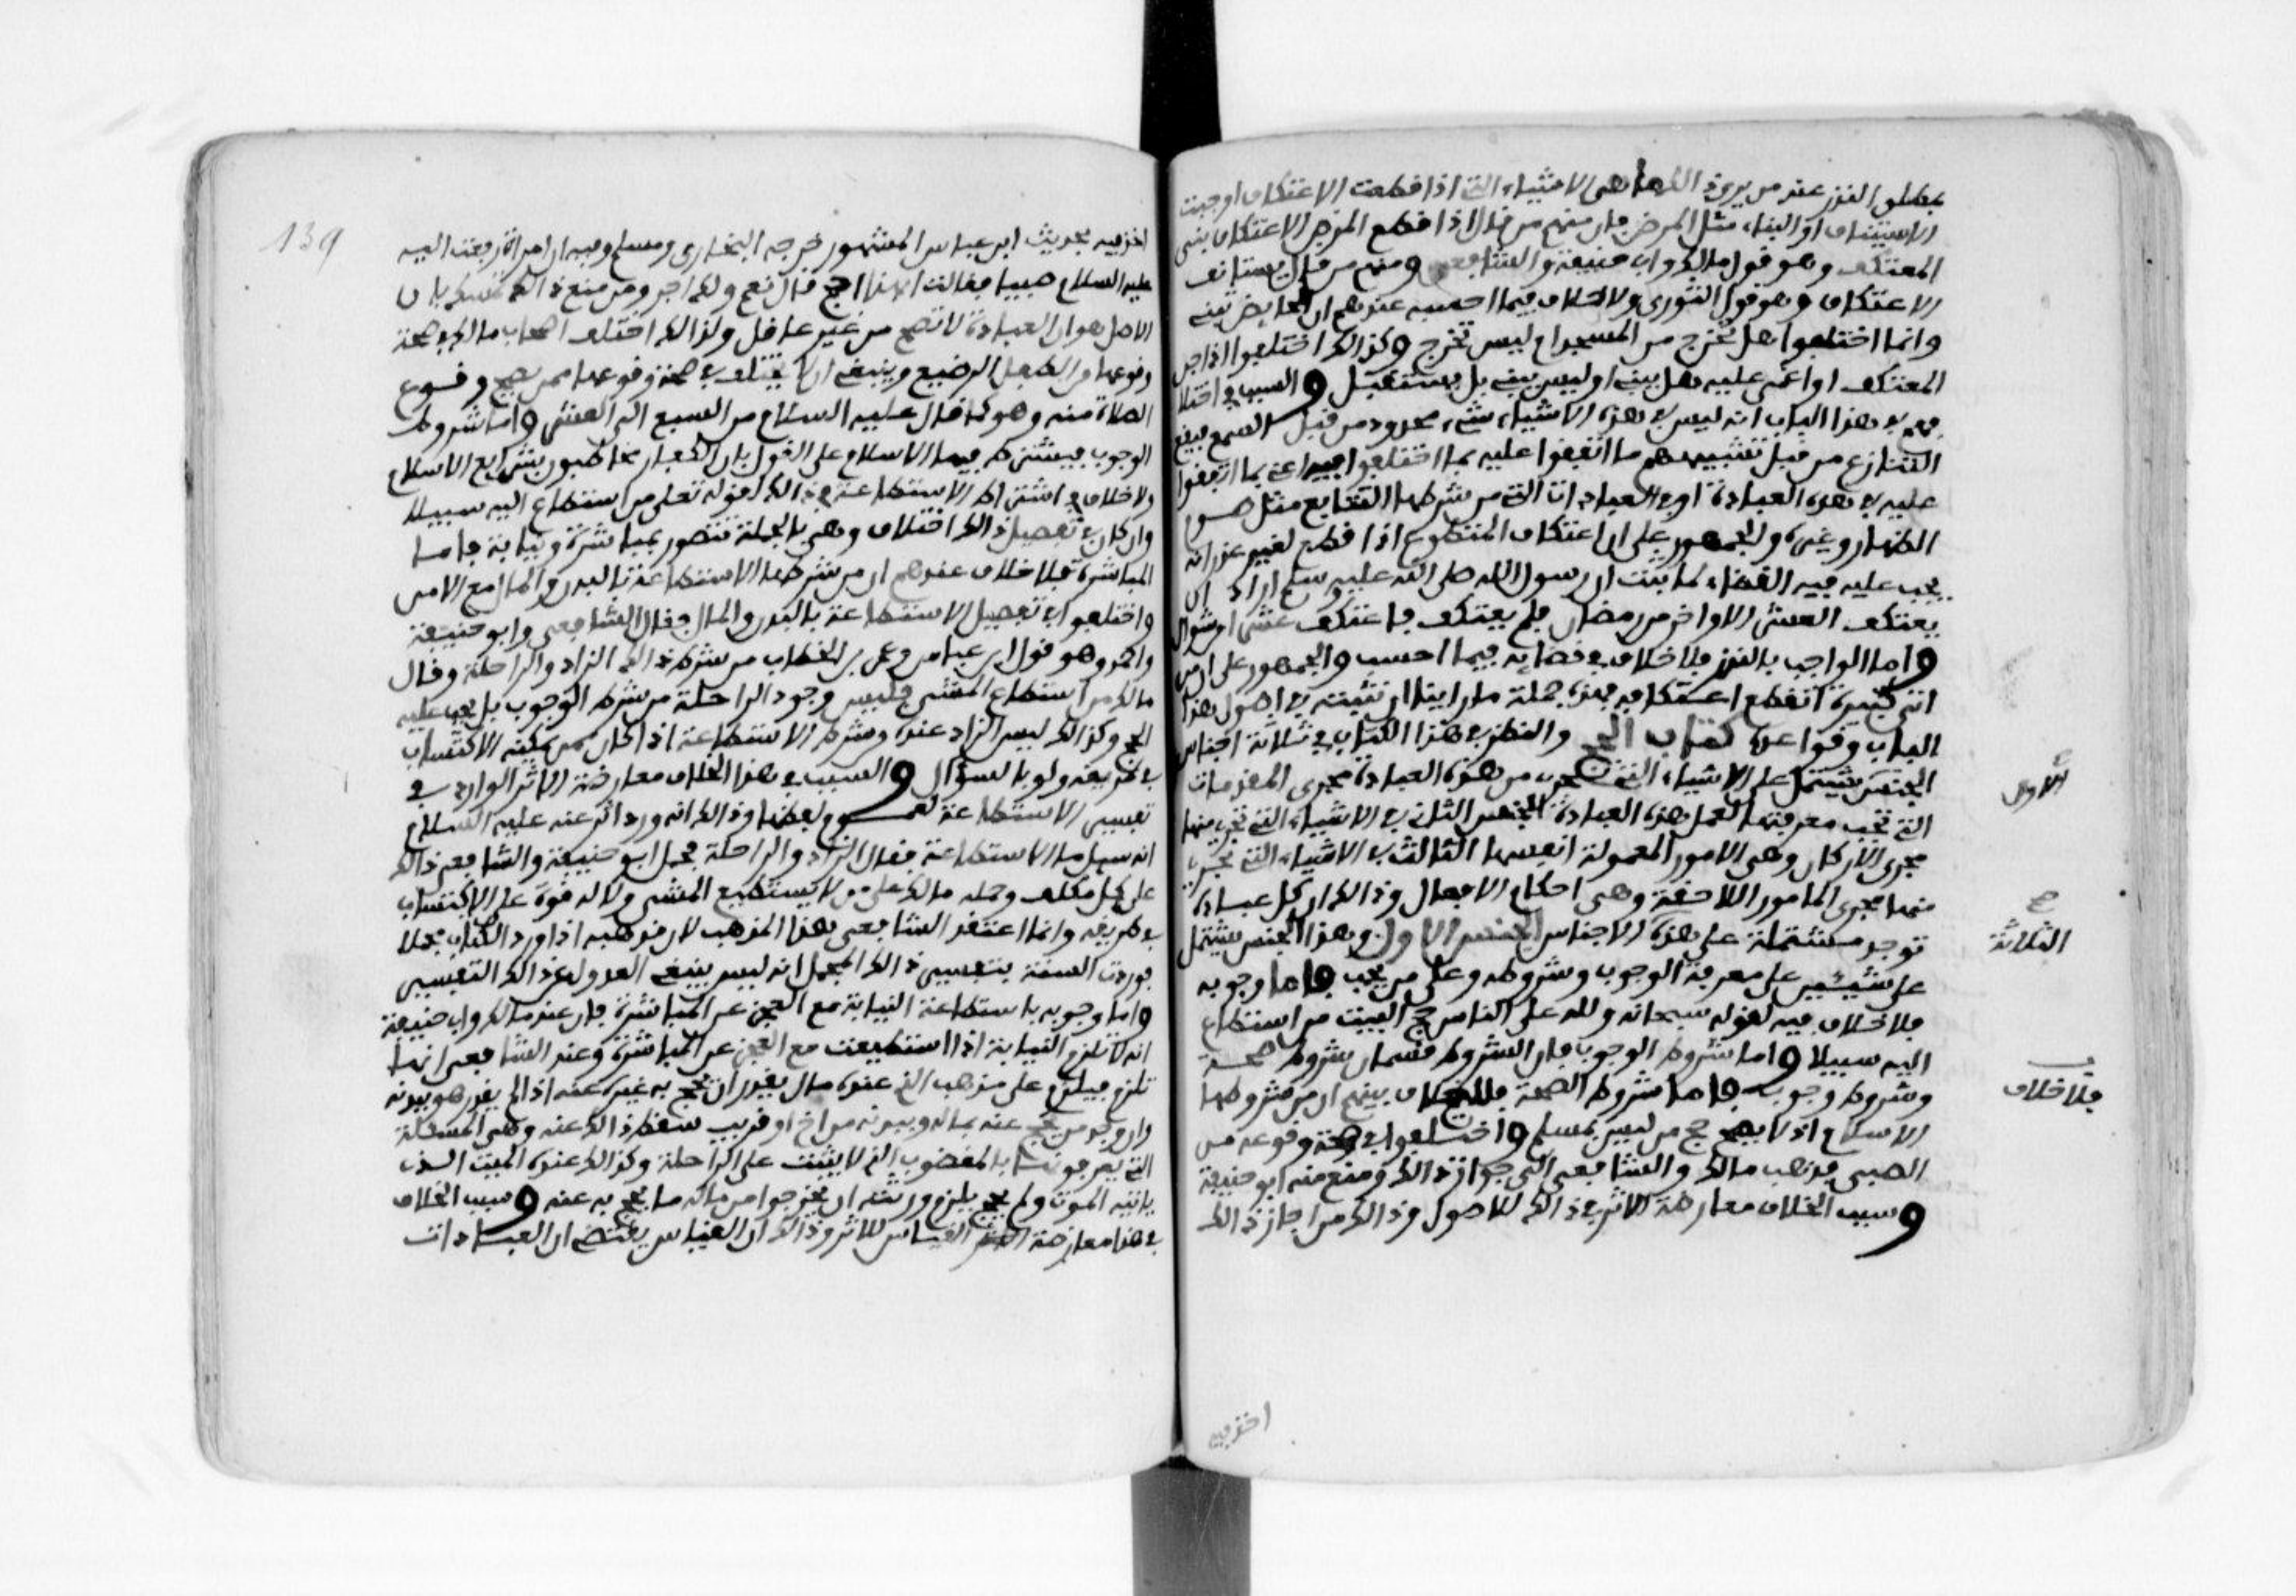 بمطلق النذر عند من يرى ذلك هي الاشياء التي اذا قطعت الاعتكاف اوجبت
الاستيناف او البناء مثل المرض فان منهم من قال اذا قطع المرض الاعتكاف بنى
المعتكف وهو قول مالك وابي حنيفة والشافعي ومنهم من قال يستانف
الاعتكاف وهو قول الثوري ولا خلاف فيما احسبه عندهم ان الحايض تبني
وانما اختلفوا هل تخرج من المسجد ام ليس تخرج وكذلك اختلفوا اذا جن
المعتكف او اغمي عليه هل يبني او ليس يبني بل يستقبل والسبب في اختلا
فهم في هذا الباب انه ليس في هذه الاشياء شيء محدود من قبل السمع فيقع
التنازع من قبل تشبيههم ما اتفقوا عليه بما اختلفوا فيه اعني بما اتفقوا
عليه في هذه العبادة او في العبادات التي من شرطها التتابع مثل صوم
الظهار وغيره والجمهور على ان اعتكاف المتطوع اذا قطع لغير عذر انه
يجب عليه فيه القضاء لما ثبت ان رسول الله صلى الله عليه وسلم اراد ان
يعتكف العشر الاواخر من رمضان فلم يعتكف فاعتكف عشرا من شوال
واما الواجب بالنذر فلا خلاف في قضائه فيما احسب والجمهور على ان من
اتى كبيرة انقطع اعتكافه فهذه جملة ما راينا ان نثبته في اصول هذا
الباب وقواعده كتاب الحج والنظر في هذا الكتاب في ثلاثة اجناس
الجنس يشتمل على الاشياء التي تجري من هذه العبادة مجرى المقدمات
التي تجب معرفتها لعمل هذه العبادة الجنس الثاني في الاشياء التي تجري منها
مجرى الاركان وهي الامور المعمولة انفسها الثالث في الاشياء التي تجري
منها مجرى الامور اللاحقة وهي احكام الافعال وذلك ان كل عبادة
توجد مشتملة على هذه الاجناس الجنس الاول وهذا الجنس يشتمل
على شيئين على معرفة الوجوب وشروطه وعلى من يجب فاما وجوبه
فلا خلاف فيه لقوله سبحانه ولله على الناس حج البيت من استطاع
اليه سبيلا واما شروط الوجوب فان الشروط قسمان شروط صحة
وشروط وجوب فاما شروط الصحة فلا خلاف بينهم ان من شروطها
الاسلام اذ لا يصح حج من ليس بمسلم واختلفوا في صحة وقوعه من
الصبي فذهب مالك والشافعي الى جواز ذلك ومنع منه ابو حنيفة
وسبب الخلاف معارضة الاثر في ذلك للاصول وذلك من اجاز ذلك
الاول
الثلاثة
فلا خلاف
اخذ فيه
139
اخذ فيه بحديث ابن عباس المشهور خرجه البخاري ومسلم وفيه ان امراة رفعت اليه
عليه السلام صبيا فقالت الهذا حج قال نعم ولك اجر ومن منع ذلك تمسك بان
الاصل هو ان العبادة لا تصح من غير عاقل ولذلك اختلف اصحاب مالك في صحة
وقوعها من الطفل الرضيع وينبغي ان لا يختلف في صحة وقوعها ممن يصح وقوع
الصلاة منه وهو كما قال عليه السلام من السبع الى العشر واما شروط
الوجوب فيشترط فيها الاسلام على القول بان الكفار مخاطبون بشرايع الاسلام
ولا خلاف في اشتراط الاستطاعة في ذلك لقوله تعلى من استطاع اليه سبيلا
وان كان في تفصيل ذلك اختلاف وهي بالجملة تتصور بمباشرة ونيابة فاما
المباشرة فلا خلاف عندهم ان من شرطها الاستطاعة بالبدن والمال مع الامن
واختلفوا في تفصيل الاستطاعة بالبدن والمال فقال الشافعي وابو حنيفة
واحمد وهو قول ابن عباس وعمر بن الخطاب من شرط ذلك الزاد والراحلة وقال
مالك من استطاع المشي فليس وجود الراحلة من شرط الوجوب بل يجب عليه
الحج وكذلك ليس الزاد عنده من شرط الاستطاعة اذا كان ممن يمكنه الاكتساب
في طريقه ولو بالسؤال والسبب في هذا الخلاف معارضة الاثر الوارد في
تفسير الاستطاعة لعموم لفظها وذلك انه ورد اثر عنه عليه السلام
انه سيل ما الاستطاعة فقال الزاد والراحلة فحمل ابو حنيفة والشافعي ذلك
على كل مكلف وحمله مالك على من لا يستطيع المشي ولا له قوة على الاكتساب
في طريقه وانما اعتقد الشافعي هذا المذهب لان من مذهبه اذا ورد الكتاب مجملا
فوردت السنة بتفسير ذلك المجمل انه ليس ينبغي العدول عن ذلك التفسير
واما وجوبه باستطاعة النيابة مع العجز عن المباشرة فان عند مالك وابي حنيفة
انه لا تلزم النيابة اذا استطيعت مع العجز عن المباشرة وعند الشافعي انها
تلزم فيلزم على مذهب الذي عنده مال يقدر ان يحج به غيره عنه اذا لم يقدر هو ببدنه
وان وجد من يحج عنه بماله وبدنه من اخ او قريب سقط ذلك عنه وهي المسئلة
التي يعرفونها بالمغضوب الذي لا يثبت على الراحلة وكذلك عنده الميت الذي
ياتيه الموت ولم يحج يلزم ورثته ان يخرجوا من ماله ما يحج به عنه وسبب الخلاف
في هذا معارضة القياس للاثر وذلك ان القياس يقتضي ان العبادات